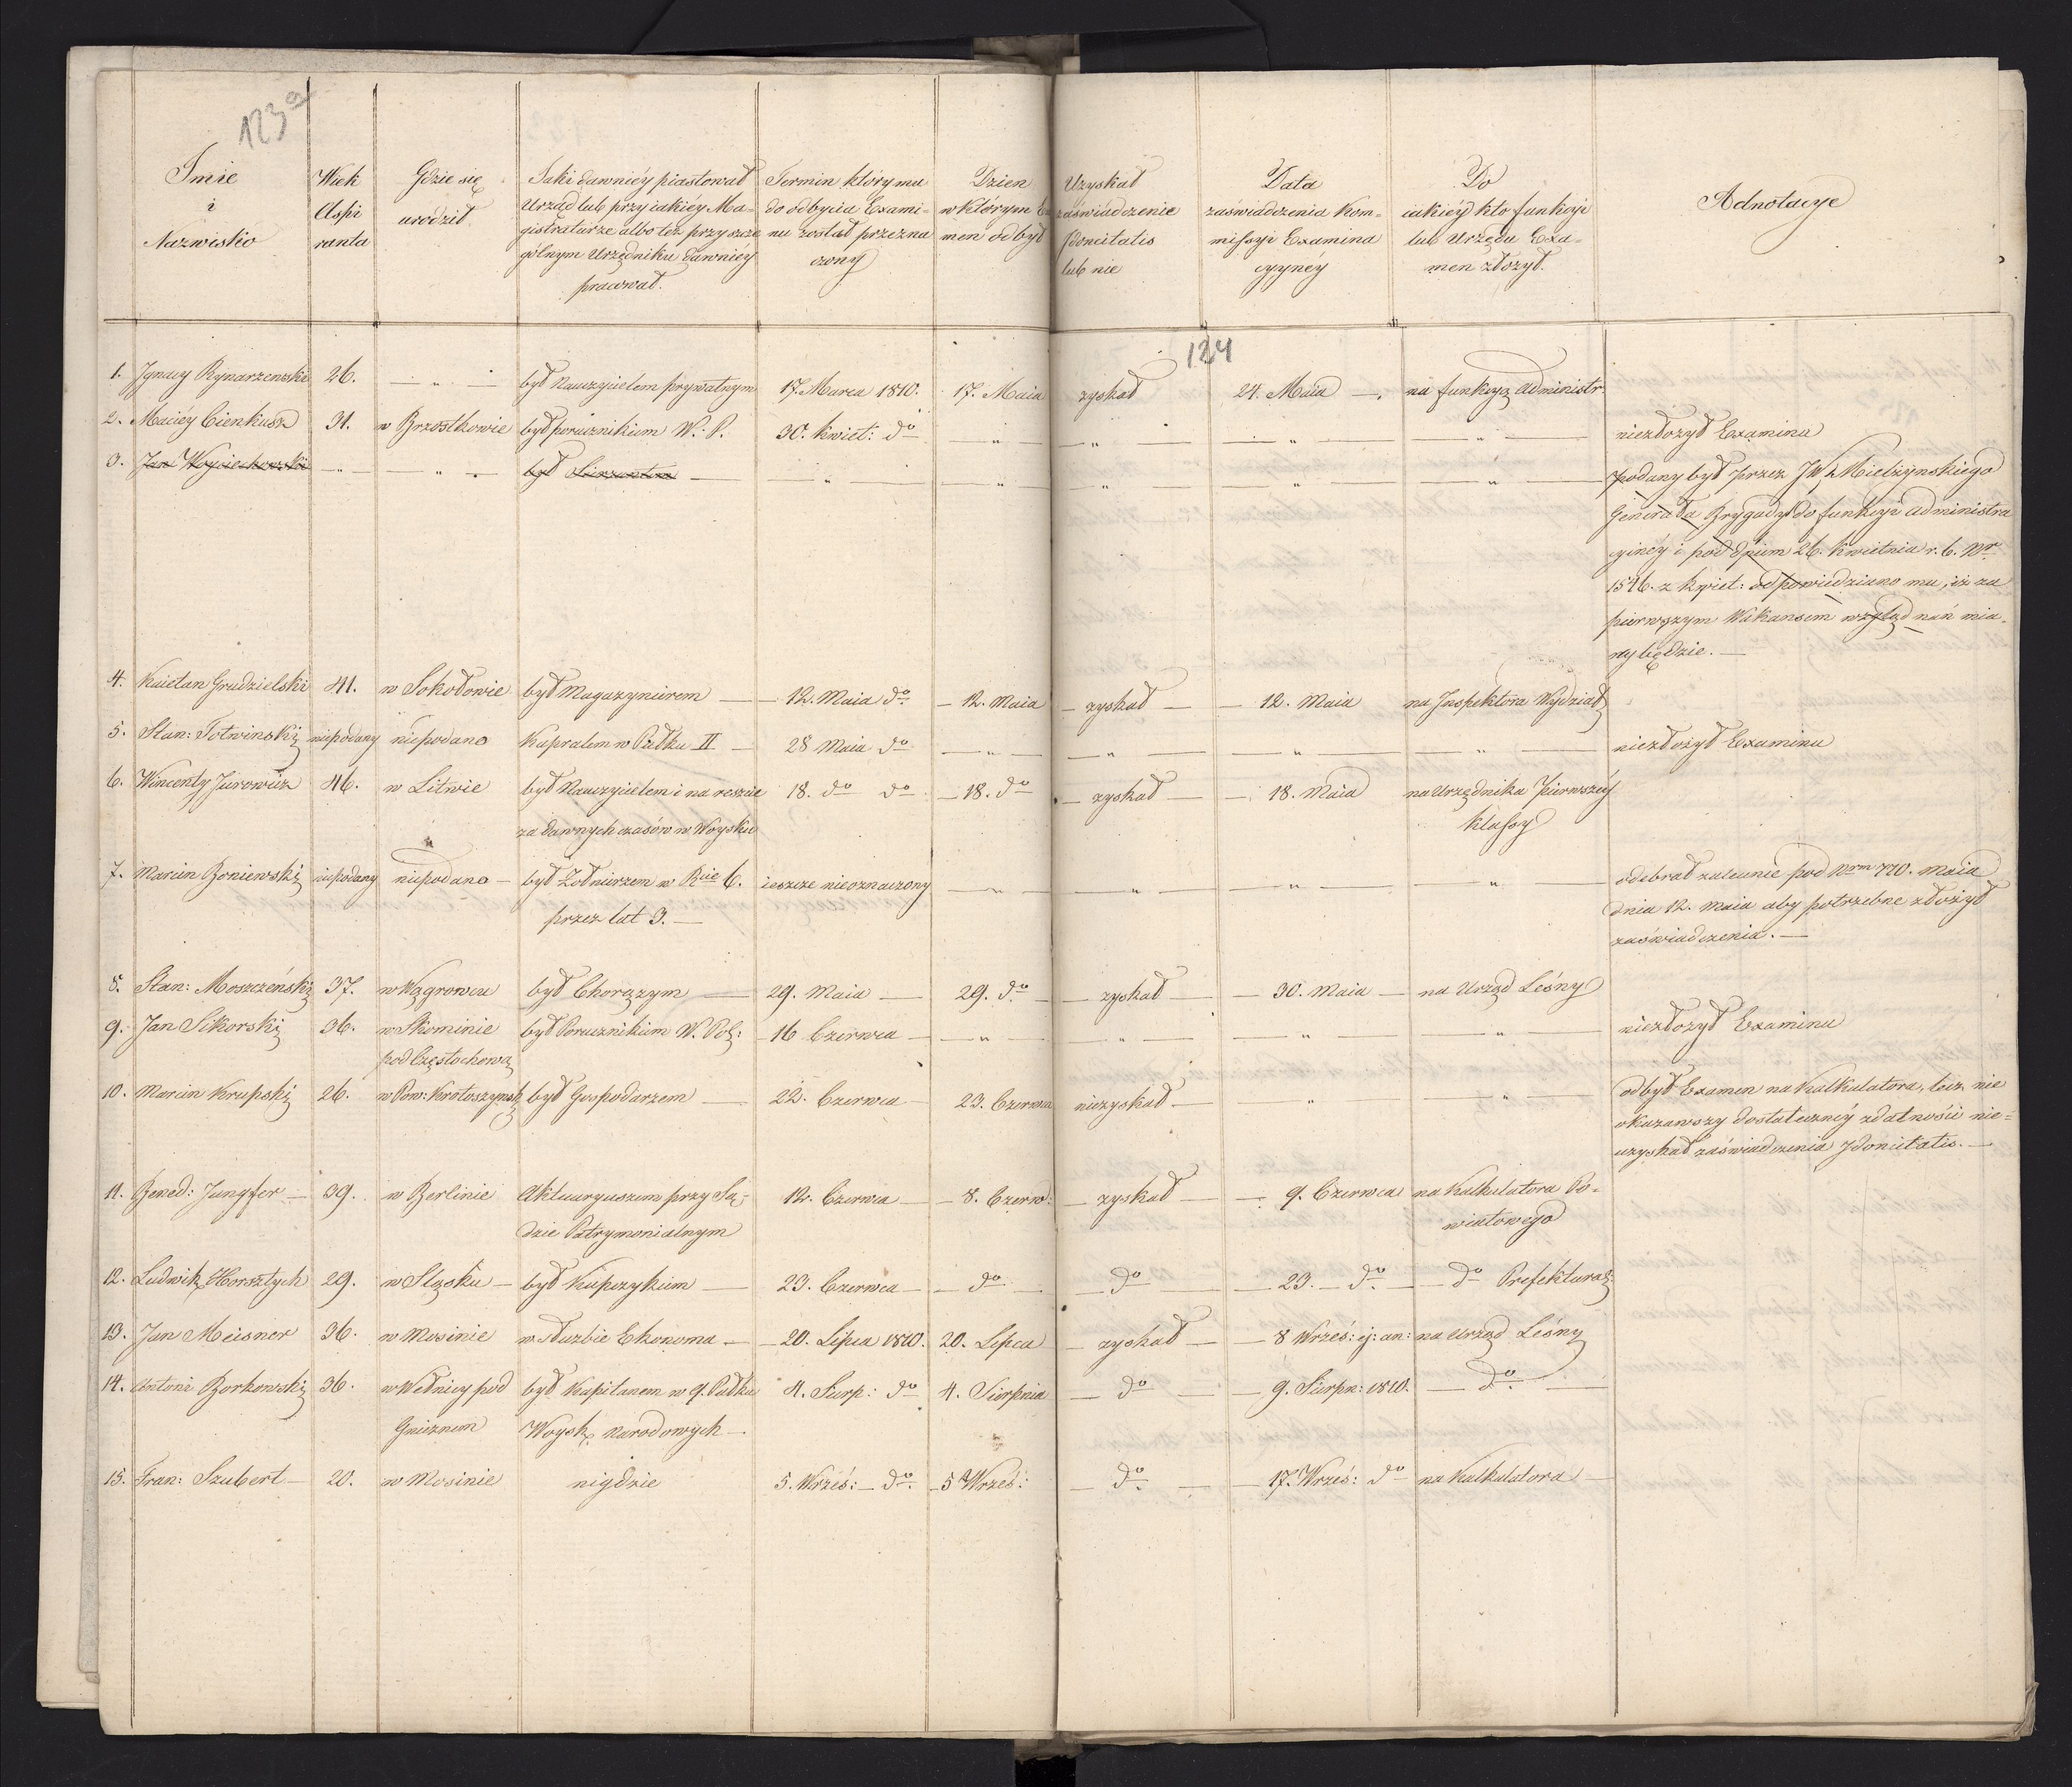 123a
Imie
i
Nazwisko
Wiek
Aspi
ranta
Gdzie się
urodził
Jaki dawniéy piastował
Urząd lub przy iakiéy Ma-
gistraturze albo też przy szcze
gólnym Urzędniku dawniéy
pracował.
Termin który mu
do odbycia Exami-
nu został przezna
czony
Dzien
w którym Exa
men odbył
Uzyskał
zaświadczenie
Idoneitatis
lub nie
Data
zaświadczenia Kom-
missyi Examina
cyynéy
Do
iakiéy kto funkcyi
lub Urzędu Exa-
men złożył.
Adnotacye
124
1. Ignacy Rynarzewski 26. — „ — był Nauczycielem prywatnym 17. Marca 1810. 17. Maia zyskał 24. Maia —. na funkcyą administr.
2. Maciéy Cienkusz 31. w Brzostkowie był porucznikiem W: P. 30. Kwiet: do — „ — — „ — — „ — — „ — niezłożył Examinu
3. Jan Woyciechowski — „ — — „ — był Sierzantem — — „ — — „ — — „ — — „ — — „ — podany był przez JW Mielżynskiego
Generała Brygady do funkcyi administra
cyinéy i pod dniem 26. Kwietnia r. b. Nr
1546. z Kwiet: odpowiedziano mu, iż za
pierwszym Wakansem wzgląd nań mia-
ny będzie. —
4. Kaietan Grudzielski 41. w Sokołowie był Magazynierem — — 12. Maia do — 12. Maia — zyskał — — 12. Maia na Inspektora Wydziału
5. Stan: Totwinski niepodany niepodano Kapralem w Pułku II — 28 Maia do — „ — — „ — — „ — — „ — niezłożył Examinu
6. Wincenty Jurowicz 46. w Litwie był Nauczycielem i na reszcie 18. do do — 18. do — zyskał — —. 18. Maia na Urzędnika Pierwszéy
za dawnych czasów w Woysku
klassy
7. Marcin Boniewski niepodany niepodano — był Żołnierzem w Rcie 6. ieszcze nieoznaczony — „ — — „ — — „ — — „ — odebrał zalecenie pod Nrm 770. Maia
przez lat 3. —
dnia 12. Maia aby potrzebne złożył
zaświadczenia. —
8. Stan: Moszczeński 37. w Wągrowcu był Chorążym — 29. Maia — 29. do — zyskał — — 30. Maia — na Urząd Leśny
9. Jan Sikorski 36. w Kominie był Porucznikiem W. Pol: — 16 Czerwca — — „ — — „ — — „ — — „ — niezłożył Examinu
pod Częstochową
10. Marcin Krupski 26. w Pow: Krotoszynsk był Gospodarzem — 22. Czerwca — 23. Czerwca niezyskał — „ — — „ — odbył Examen na Kalkulatora, lecz nie
okazawszy dostatecznéy zdatności nie-
uzyskał zaświadczenia Idoneitatis. —
11. Bened: Jungfer — 39. w Berlinie Aktuaryuszem przy Są- 12. Czerwca — — 8. Czerw: — zyskał — — 9. Czerwca na Kalkulatora Po-
dzie Patrymonialnym
wiatowego
12. Ludwik Horsztych 29. w Slązku — był Kupczykiem — 23. Czerwca — — do — — do — — 23. — do — — do Prefektural:
13. Jan Meisner 36. w Mosinie w służbie Ekonoma — — 20. Lipca 1810. 20. Lipca — zyskał — — 8 Wrześ: ej: an: na Urząd Leśny
14. Antoni Borkowski 36. w Wełnicy pod był Kapitanem w 9. Pułku 4. Sierp: do 4. Sierpnia — do — — 9. Sierpn: 1810. — do —
Gnieznem
Woysk Narodowych —
15. Fran: Szubert — 20. w Mosinie nigdzie 5. Wrześ: — do — 5 Wrześ: — do — — 17. Wrześ: do na Kalkulatora —